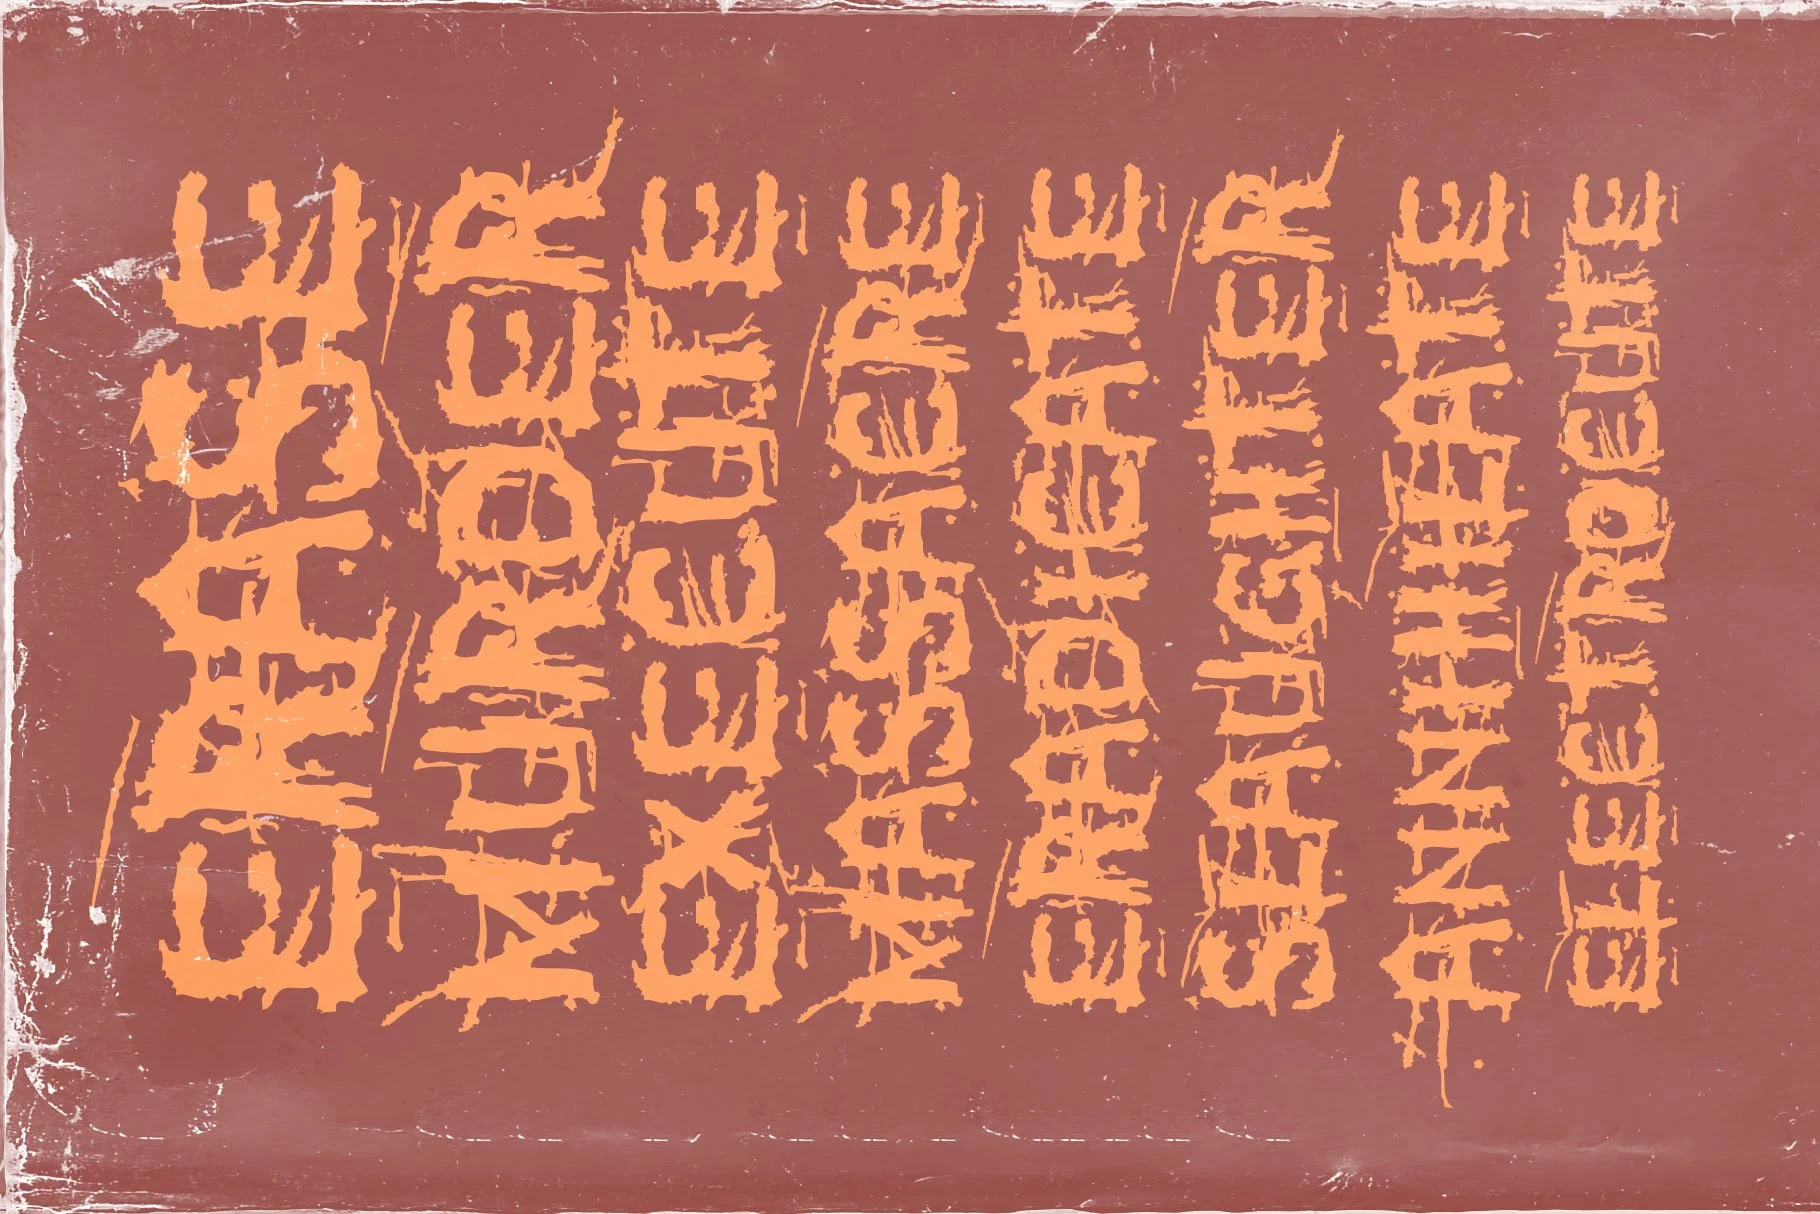 ERASE
MURDER
EXECUTE
MASSACRE
ERADICATE
SLAUGHTER
ANNIHILATE
ELECTROCUTE